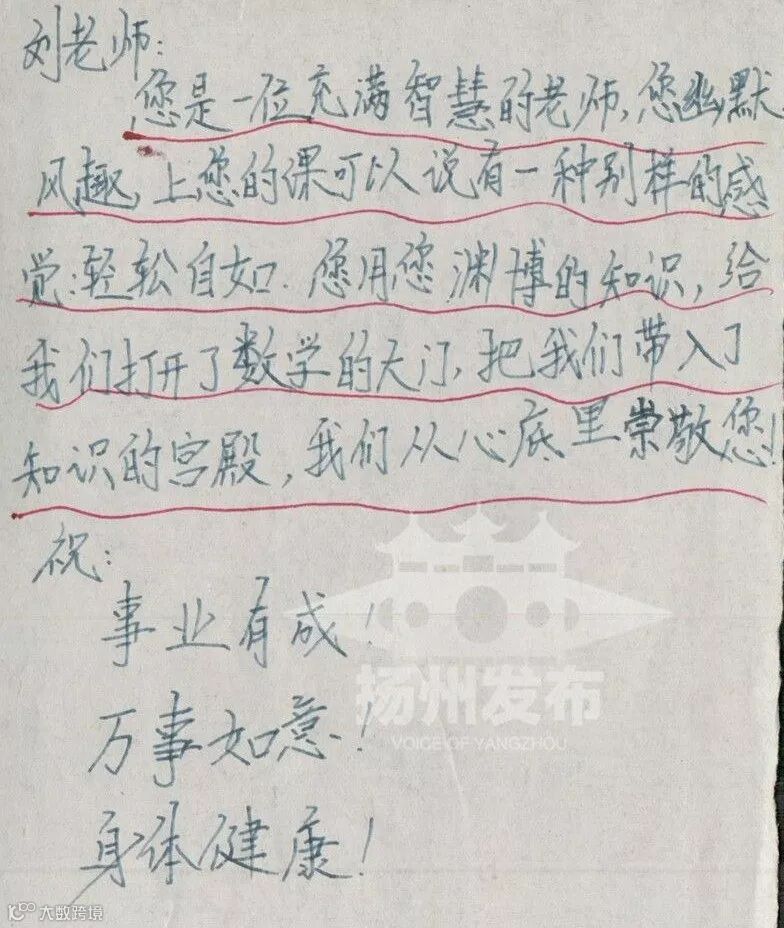 刘老师:
您是一位充满智慧的老师,您幽默
风趣,上您的课可以说有一种别样的感
觉:轻松自如.您用您渊博的知识,给
我们打开了数学的大门,把我们带入了
知识的宫殿,我们从心底里崇敬您!
祝:
事业有成!
万事如意!
身体健康!
扬州发布
VOICE OF YANGZHOU
大数跨境